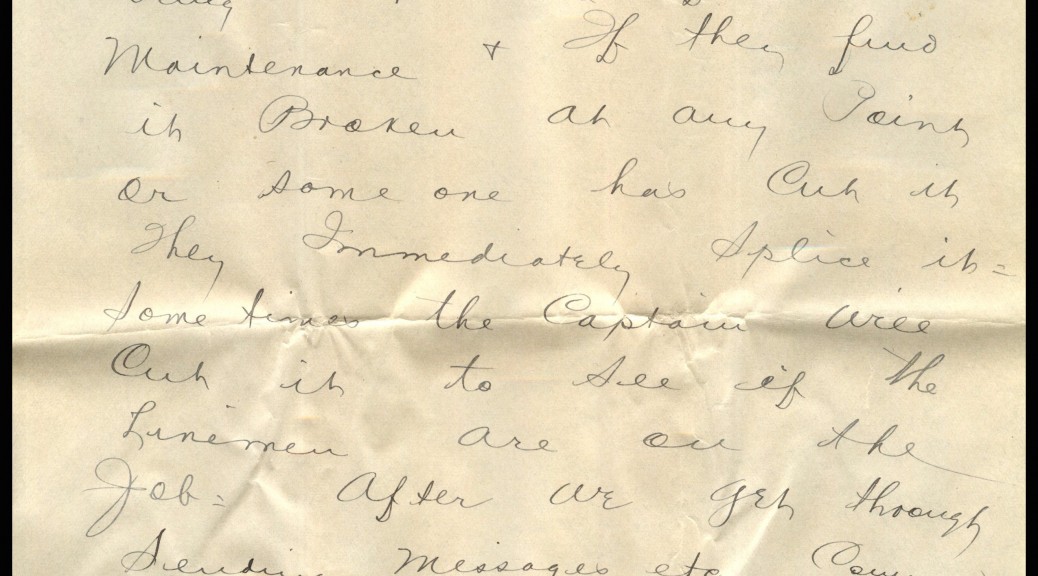 Maintenance + If they find
it Broken at any Point
or some one has Cut it
They Immediately Splice it=
Some times the Captain will
Cut it to See if the
Linemen are on the
Job= After we get through
Sending Messages etc